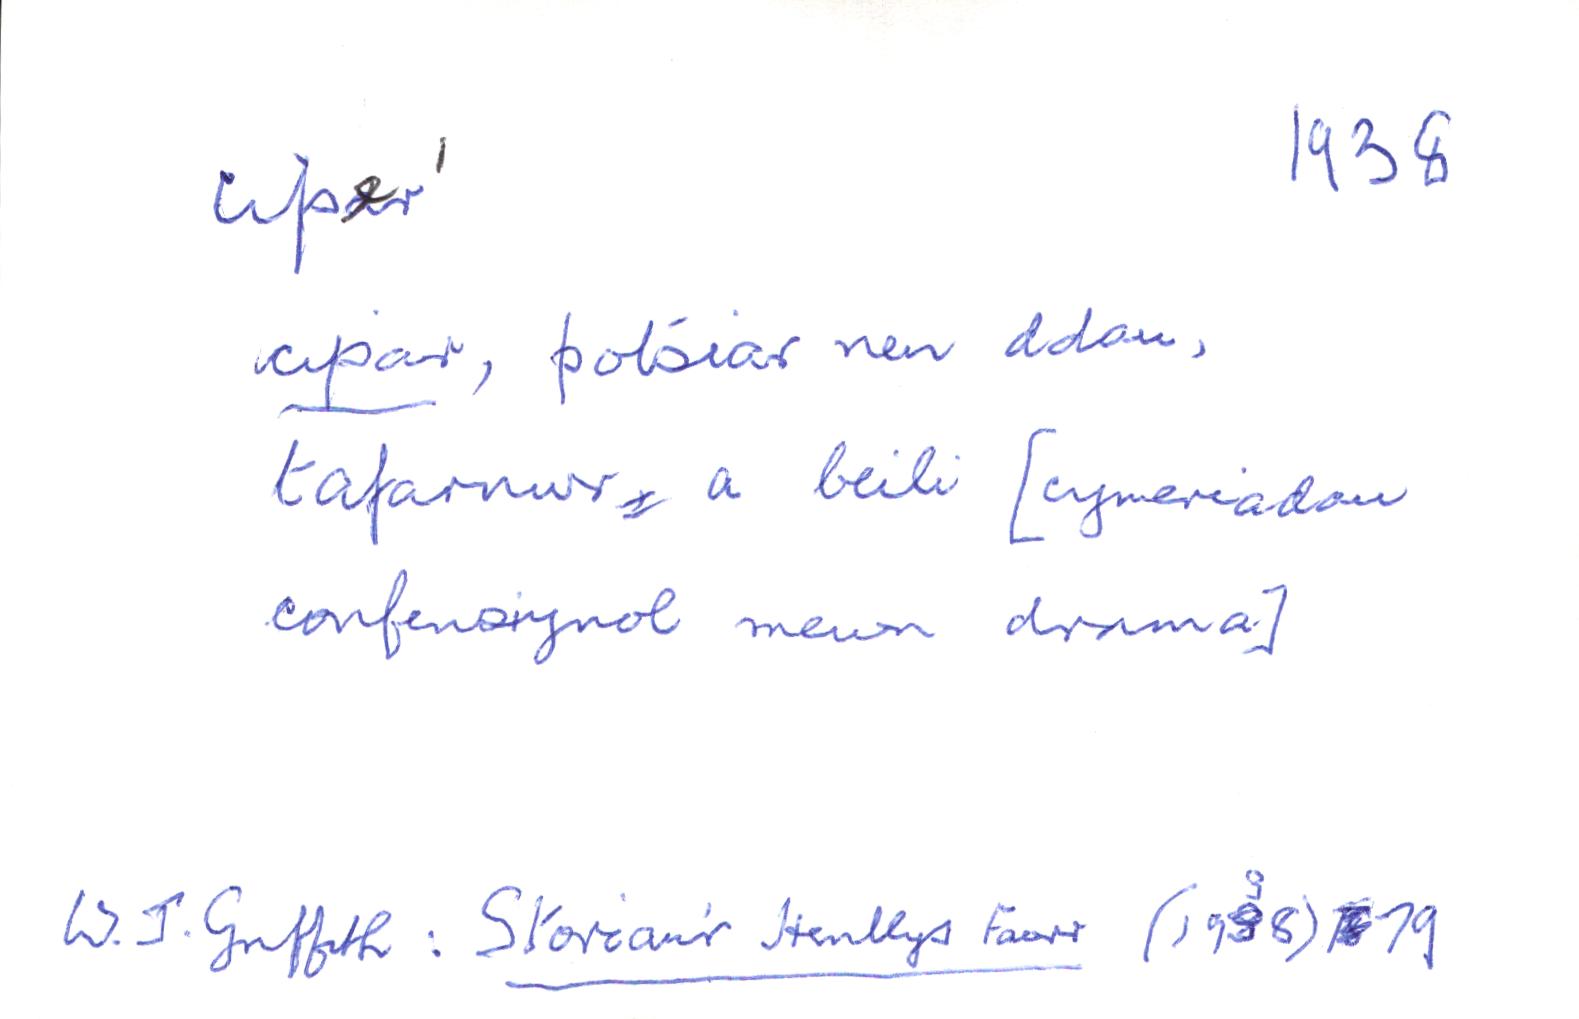 1938
ciper¹
cipar, potsiar neu ddau,
tafarnwr, a beili [cymeriadau
confensiynol mewn drama]
W.J. Griffith: Storïau'r Henllys Fawr (1938) 79